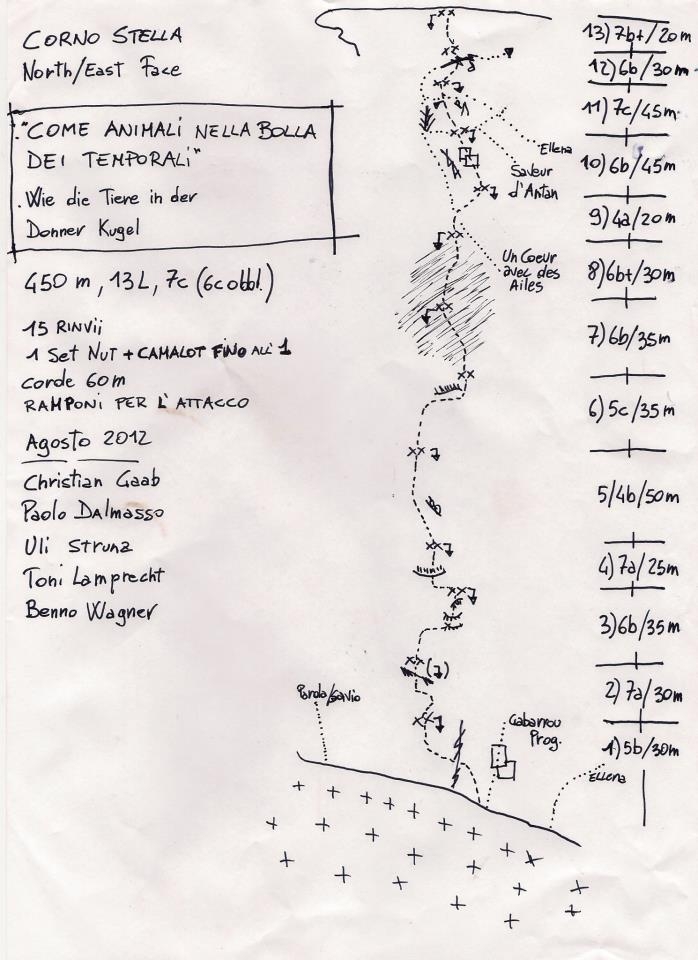 CORNO STELLA
North/East Face
"COME ANIMALI NELLA BOLLA
DEI TEMPORALI"
Wie die Tiere in der
Donner Kugel
450 m, 13L, 7c (6c obbl.)
15 RINVII
1 Set Nut + CAMALOT FINO ALL' 1
corde 60m
RAMPONI PER L'ATTACCO
Agosto 2012
Christian Gaab
Paolo Dalmasso
Uli Strunz
Toni Lamprecht
Benno Wagner
13) 7b+/20m
12) 6b/30m
11) 7c/45m
10) 6b/45m
9) 4a/20m
8) 6b+/30m
7) 6b/35m
6) 5c/35m
5/4b/50m
4) 7a/25m
3) 6b/35m
2) 7a/30m
1) 5b/30m
Ellena
Saveur
d'Antan
Un Coeur
avec des
Ailes
Parola/Savio
Gabarrou
Prog.
Ellena